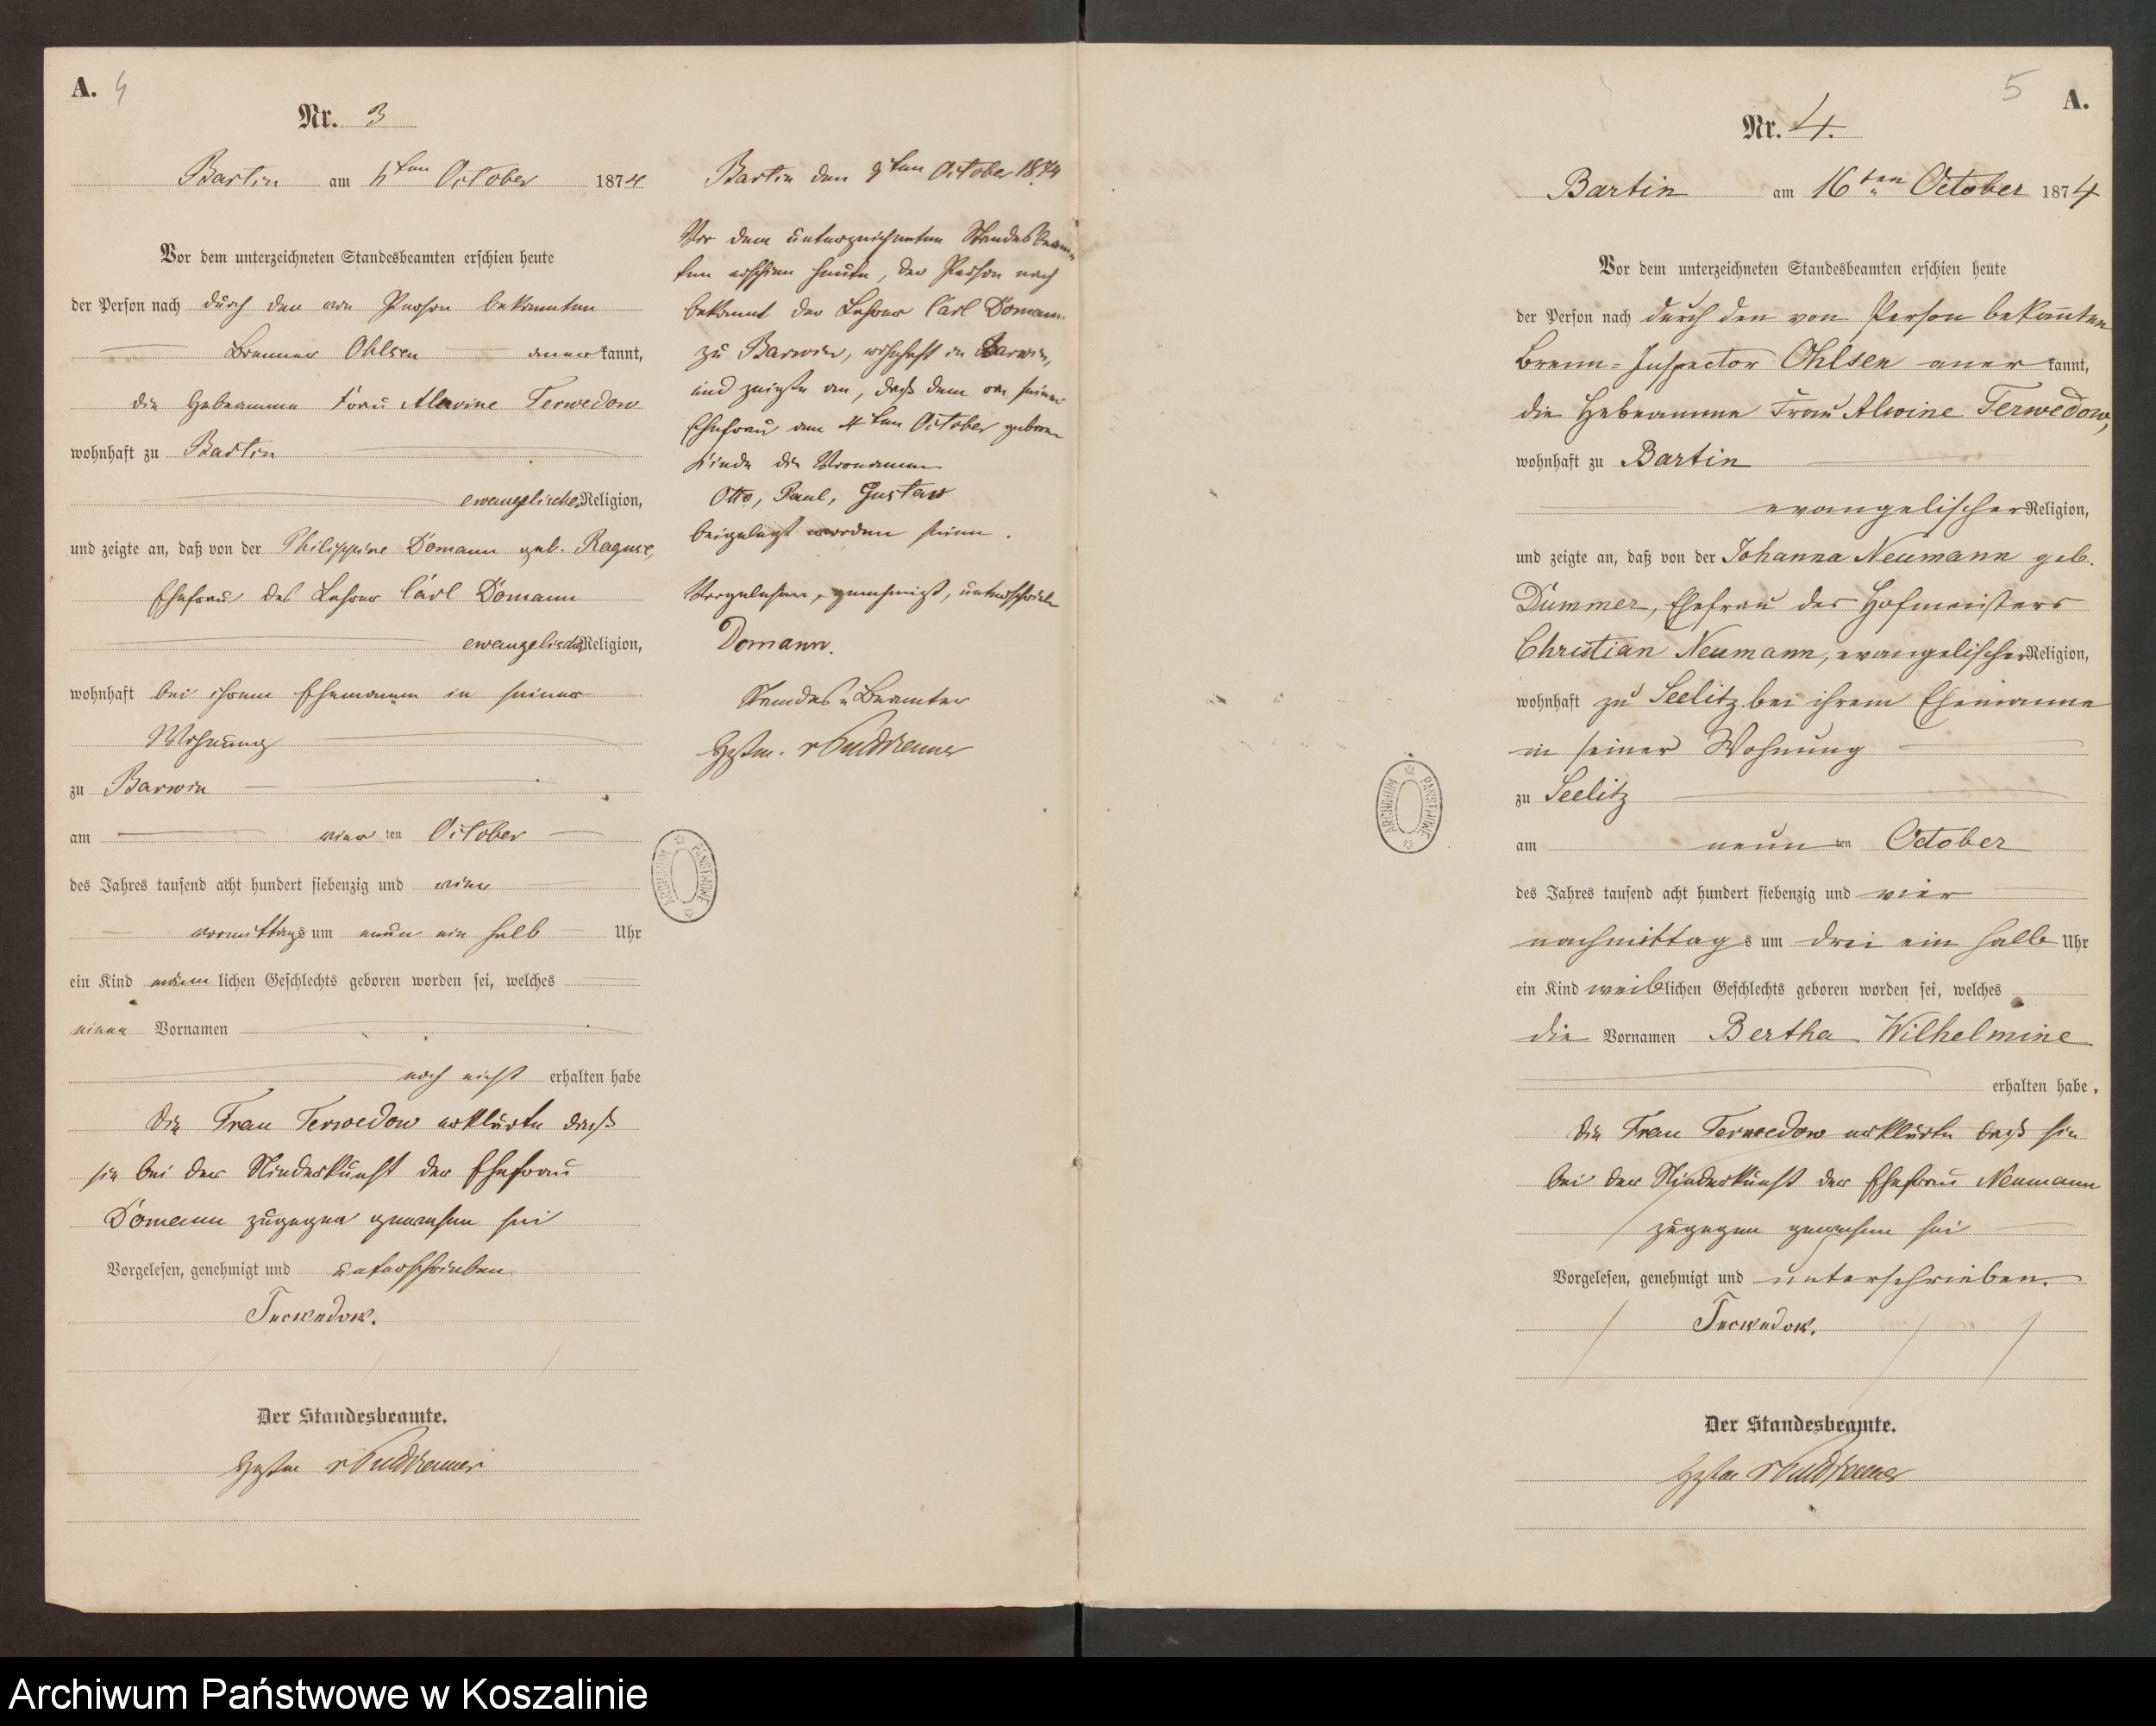 A. 4
Nr. 3
Bartin am ten October 1874
Vor dem unterzeichneten Standesbeamten erschien heute
der Person nach durch den von Person bekannten
Brenner Ohlsen anerkannt,
die Hebeamme Frau Alwine Terwedow
wohnhaft zu Bartin
ewangelischer Religion,
und zeigte an, daß von der Philippine Domann geb. Raguse,
Ehefrau des Lehrer Carl Domann
ewangelischer Religion,
wohnhaft bei ihrem Ehemann in seiner
Wohnung
zu Barwin
am vier ten October
des Jahres tausend acht hundert siebenzig und vier
vormittags um neun ein halb Uhr
ein Kind männlichen Geschlechts geboren worden sei, welches
einen Vornamen
noch nicht erhalten habe
Die Frau Terwedow erklärte daß
sie bei der Niederkunft der Ehefrau
Domann zugegen gewesen sei
Vorgelesen, genehmigt und unterschrieben
Terwedow.
Der Standesbeamte.
Bartin den 9ten October 1874
Vor dem unterzeichneten Standesbeam-
ten erschien heute, der Person nach
bekannt der Lehrer Carl Domann
zu Barwin, wohnhaft in Barwin,
und zeigte an, daß dem von seiner
Ehefrau am 4ten October geboren
Kinde die Vornamen
Otto, Paul, Gustav
beigelegt worden seien.
Vorgelesen, genehmigt, unterschrieben
Domann.
Standes-Beamter
ARCHIWUM PAŃSTWOWE
5 A.
Nr. 4.
Bartin am 16ten October 1874
Vor dem unterzeichneten Standesbeamten erschien heute
der Person nach durch den von Person bekannten
Brenn-Inspector Ohlsen anerkannt,
die Hebeamme Frau Alwine Terwedow,
wohnhaft zu Bartin
evangelischer Religion,
und zeigte an, daß von der Johanna Neumann geb.
Dummer, Ehefrau des Hofmeisters
Christian Neumann, evangelischer Religion,
wohnhaft zu Seelitz bei ihrem Ehemanne
in seiner Wohnung
zu Seelitz
am neun ten October
des Jahres tausend acht hundert siebenzig und vier
nachmittags um drei ein halb Uhr
ein Kind weiblichen Geschlechts geboren worden sei, welches
die Vornamen Bertha Wilhelmine
erhalten habe.
Die Frau Terwedow erklärte daß sie
bei der Niederkunft der Ehefrau Neumann
zugegen gewesen sei
Vorgelesen, genehmigt und unterschrieben.
Terwedow.
Der Standesbeamte.
ARCHIWUM PAŃSTWOWE
Archiwum Państwowe w Koszalinie